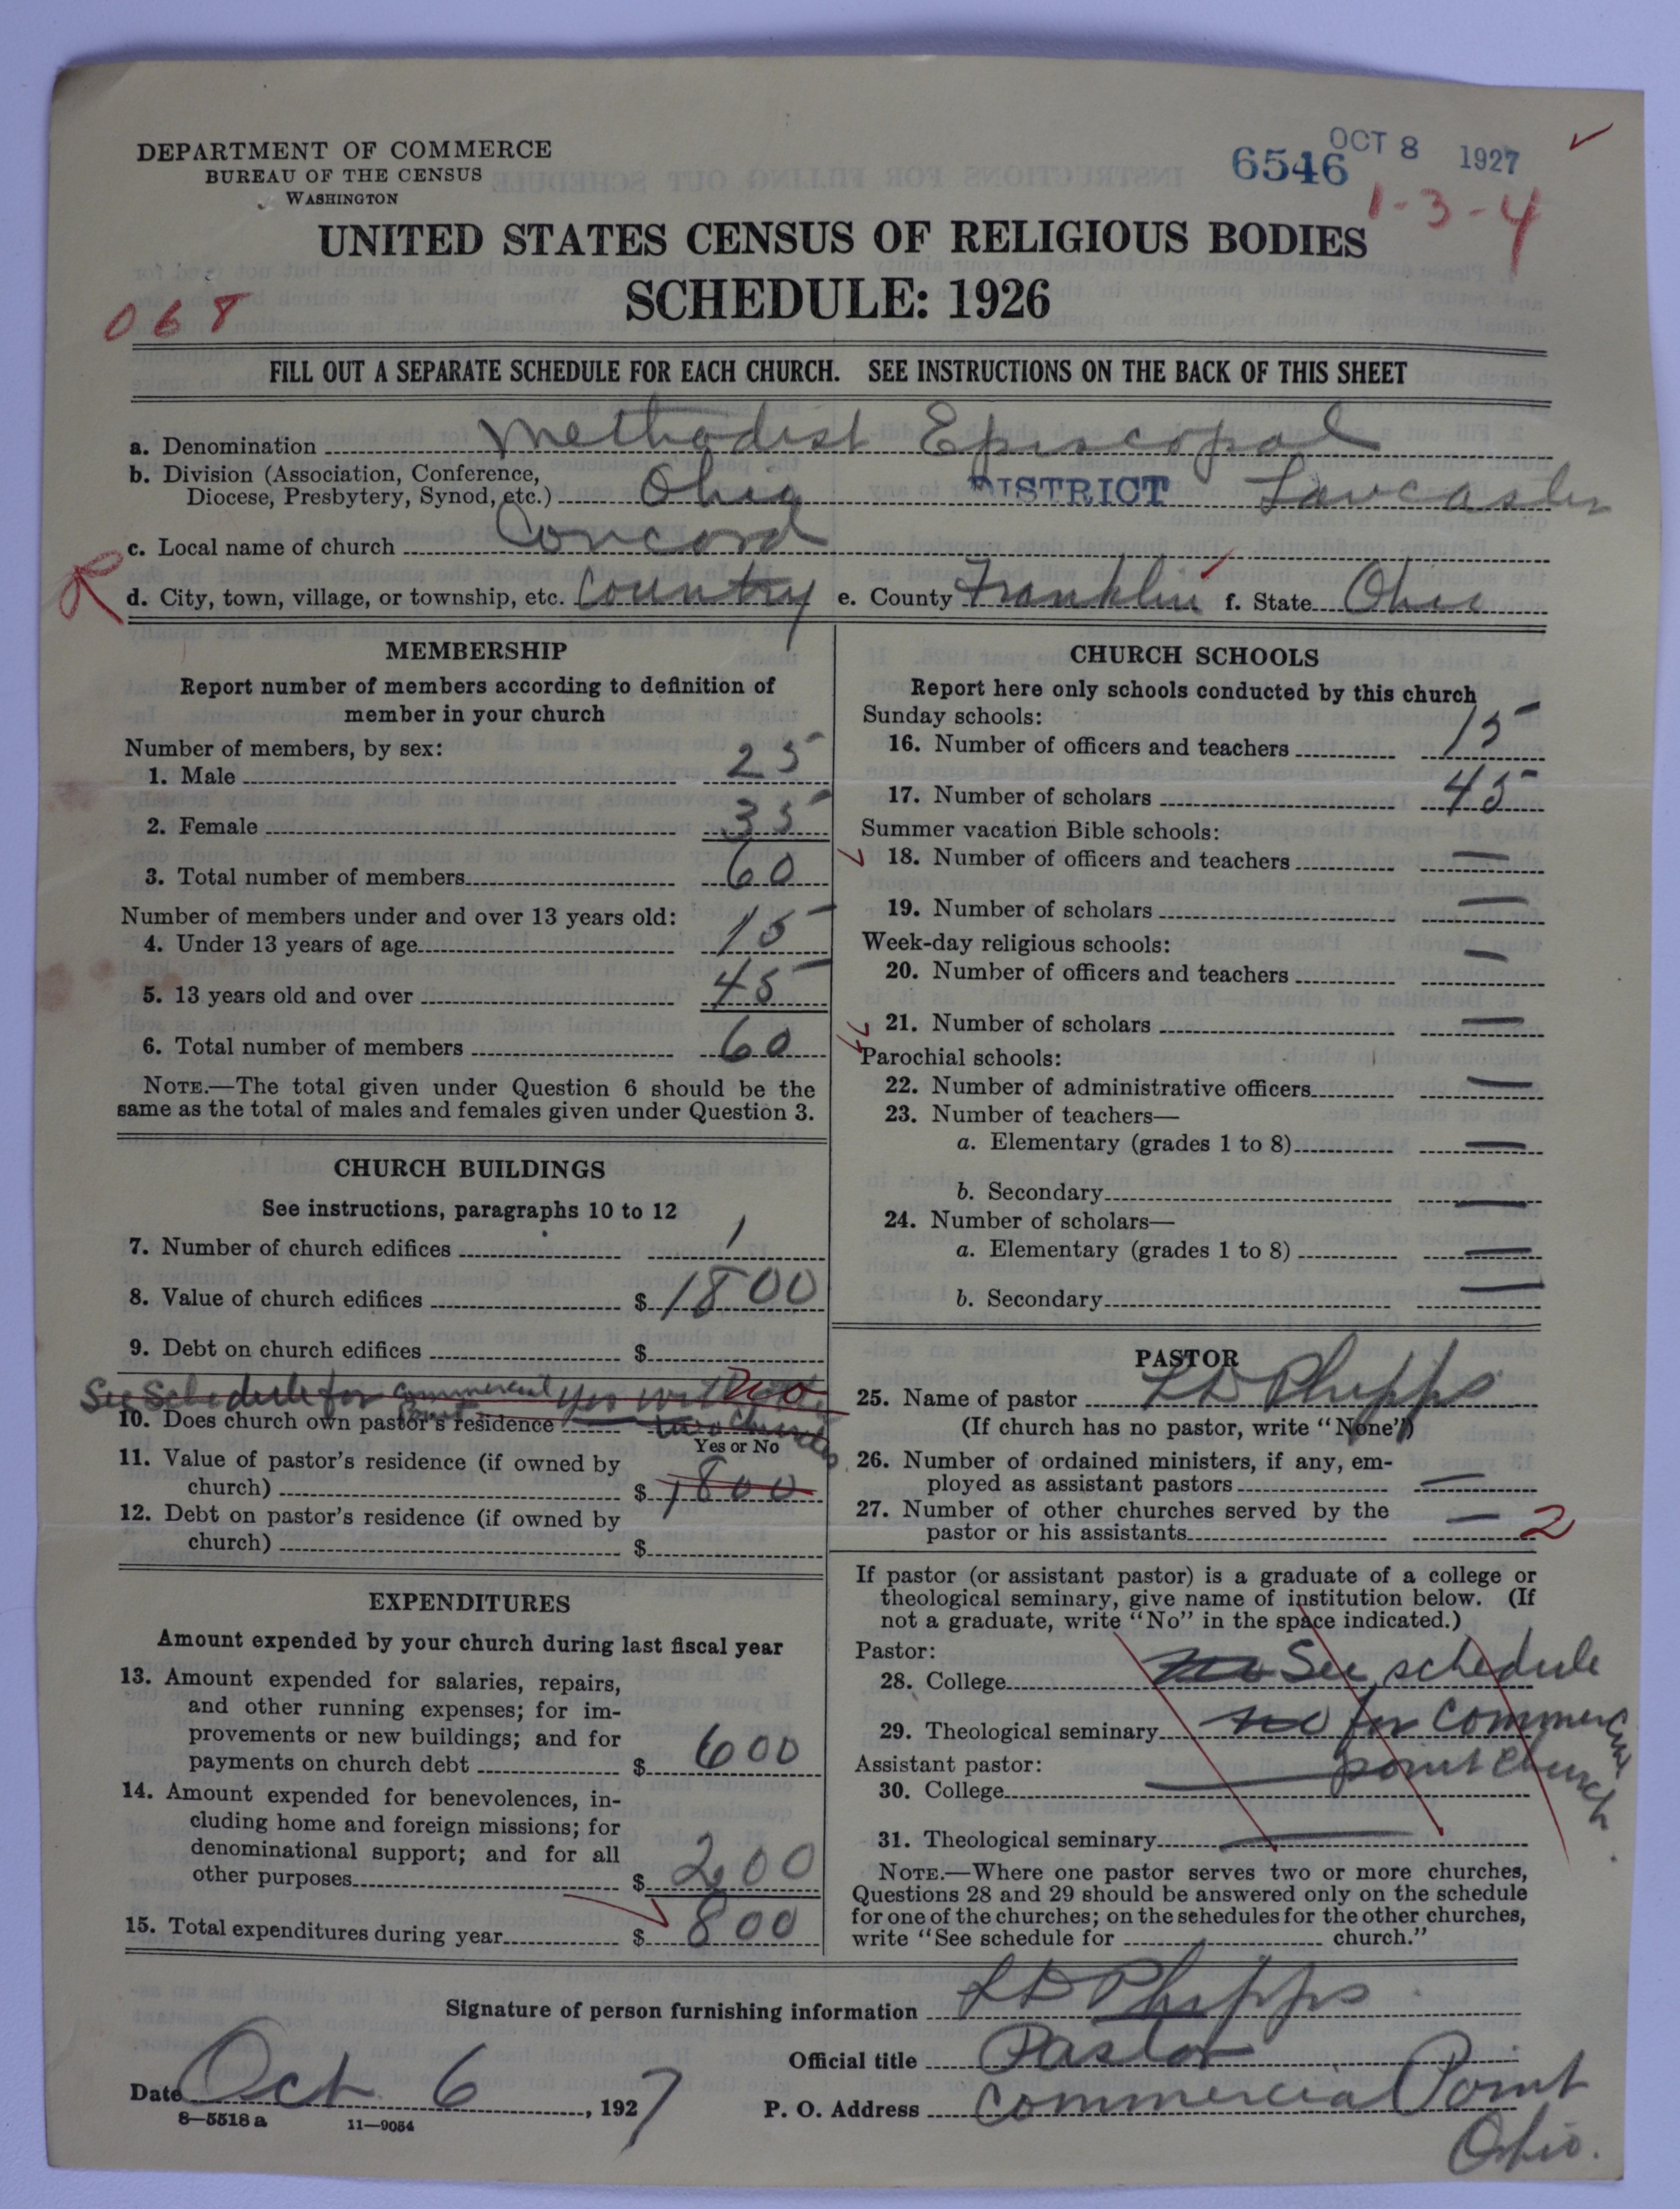 DEPARTMENT OF COMMERCE
BUREAU OF THE CENSUS
WASHINGTON
6546
OCT 8 1927
1-3-4
UNITED STATES CENSUS OF RELIGIOUS BODIES
SCHEDULE: 1926
068
FILL OUT A SEPARATE SCHEDULE FOR EACH CHURCH. SEE INSTRUCTIONS ON THE BACK OF THIS SHEET
a. Denomination Methodist Episcopal
b. Division (Association, Conference,
Diocese, Presbytery, Synod, etc.) Ohio DISTRICT Lancaster
c. Local name of church Concord
R
d. City, town, village, or township, etc. Country e. County Franklin f. State Ohio
MEMBERSHIP
Report number of members according to definition of
member in your church
Number of members, by sex:
1. Male 25
2. Female 35
3. Total number of members 60
Number of members under and over 13 years old:
4. Under 13 years of age 15
5. 13 years old and over 45
6. Total number of members 60
NOTE.—The total given under Question 6 should be the
same as the total of males and females given under Question 3.
CHURCH BUILDINGS
See instructions, paragraphs 10 to 12
7. Number of church edifices 1
8. Value of church edifices $ 1800
9. Debt on church edifices $
See Schedule for Commercial Point yes with two Churches
no
10. Does church own pastor's residence
Yes or No
11. Value of pastor's residence (if owned by
church) $ 1800
12. Debt on pastor's residence (if owned by
church) $
EXPENDITURES
Amount expended by your church during last fiscal year
13. Amount expended for salaries, repairs,
and other running expenses; for im-
provements or new buildings; and for
payments on church debt $ 600
14. Amount expended for benevolences, in-
cluding home and foreign missions; for
denominational support; and for all
other purposes $ 200
15. Total expenditures during year $ 800
CHURCH SCHOOLS
Report here only schools conducted by this church
Sunday schools:
16. Number of officers and teachers 15
17. Number of scholars 45
Summer vacation Bible schools:
18. Number of officers and teachers —
19. Number of scholars —
Week-day religious schools:
20. Number of officers and teachers —
21. Number of scholars —
Parochial schools:
22. Number of administrative officers —
23. Number of teachers—
a. Elementary (grades 1 to 8) —
b. Secondary —
24. Number of scholars—
a. Elementary (grades 1 to 8) —
b. Secondary —
PASTOR
25. Name of pastor L D Phipps
(If church has no pastor, write "None")
26. Number of ordained ministers, if any, em-
ployed as assistant pastors —
27. Number of other churches served by the
pastor or his assistants — 2
If pastor (or assistant pastor) is a graduate of a college or
theological seminary, give name of institution below. (If
not a graduate, write "No" in the space indicated.)
Pastor:
28. College no See schedule
29. Theological seminary no for Commercial
Assistant pastor:
30. College — point church
31. Theological seminary —
NOTE.—Where one pastor serves two or more churches,
Questions 28 and 29 should be answered only on the schedule
for one of the churches; on the schedules for the other churches,
write "See schedule for church."
Signature of person furnishing information L D Phipps
Official title Pastor
Date Oct 6, 1927
P. O. Address Commercial Point
Ohio.
8—5518 a 11—9054